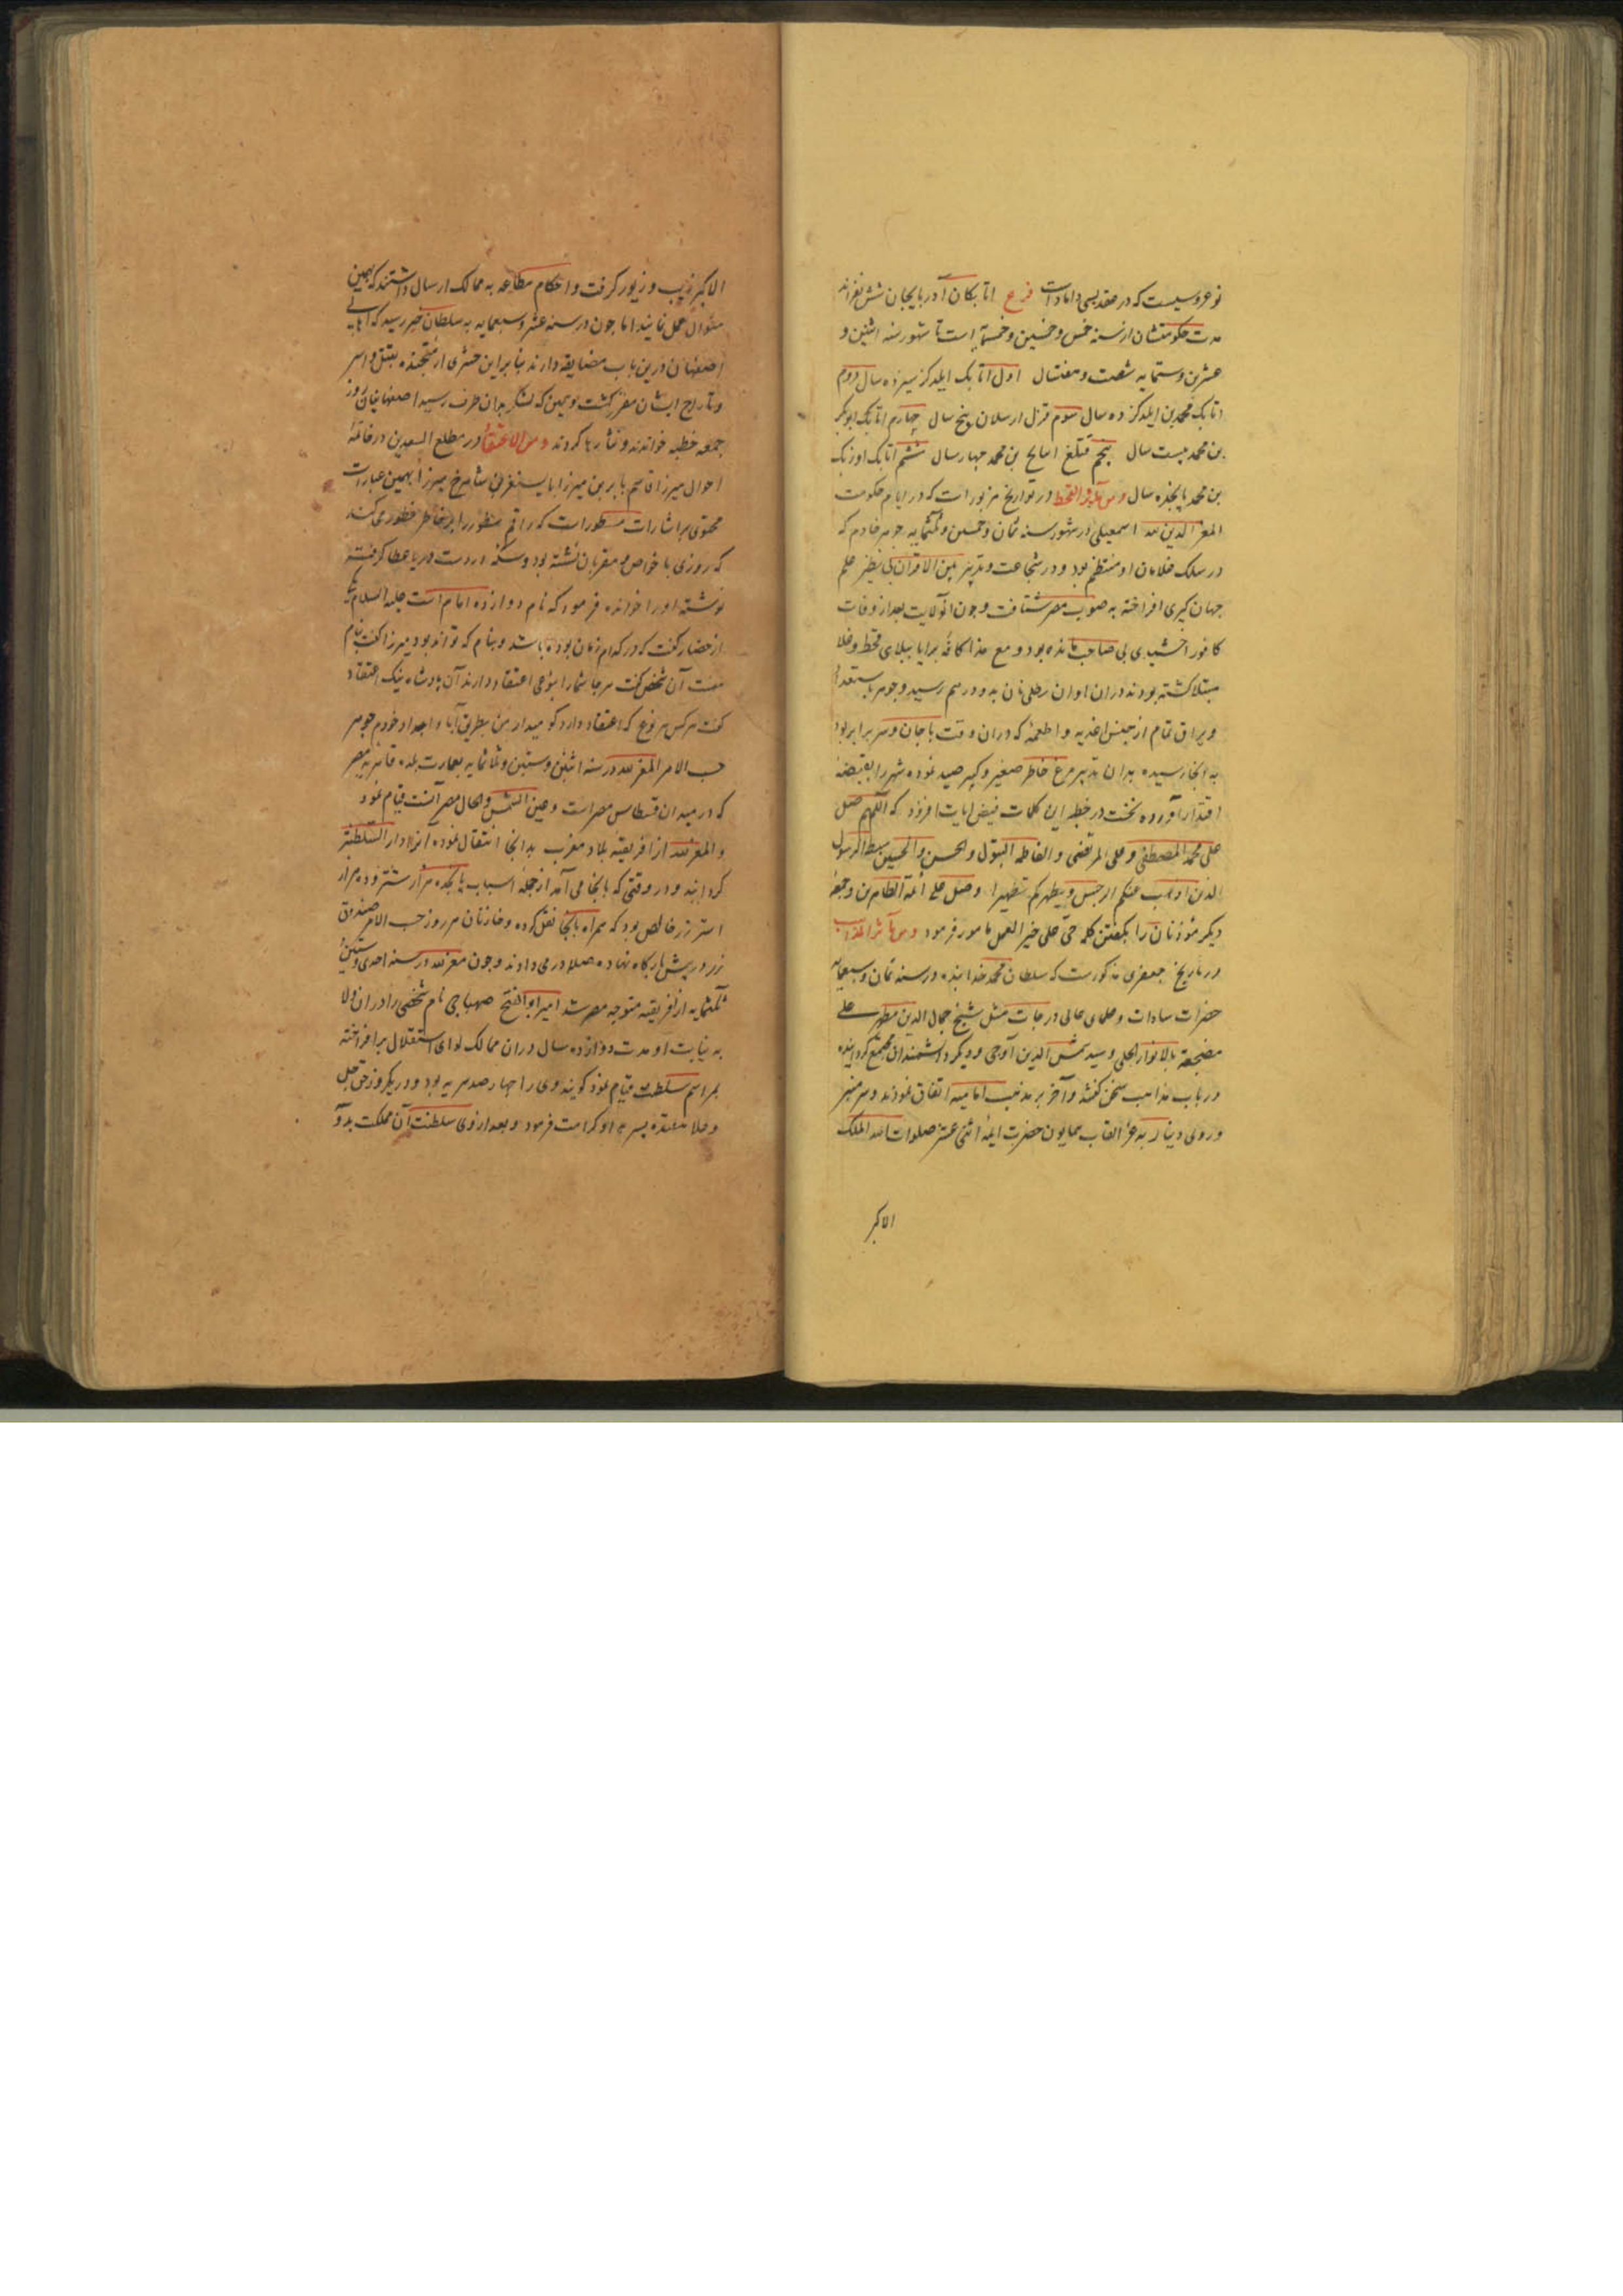 نوعروسیست که در عقد بسی داماد است فرع اتابکان آذربایجان شش نفراند
مدت حکومتشان از سنه خمس و خمسین و خمسمایه است تا شهور سنه اثنین و
عشرین و ستمایه شصت و هفت سال اول اتابک ایلدکز سیزده سال دوم
اتابک محمد بن ایلدکز ده سال سوم قزل ارسلان پنج سال چهارم اتابک ابوبکر
بن محمد بیست سال پنجم قتلغ اینانج بن محمد چهار سال ششم اتابک اوزبک
بن محمد پانجده سال و من القحط در تواریخ مزبور است که در ایام حکومت
المعز الدین لله اسمعیلی در شهور سنه ثمان و خمسین و ثلثمایه جوهر خادم که
در سلک غلامان او منتظم بود و در شجاعت و تدبیر بین الاقران بی نظیر علم
جهان گیری افراخته به صوب مصر شتافت و چون آنولایت بعد از وفات
کافور اخشیدی بی صاحب مانده بود و مع هذا کافه برایا ببلای قحط و غلا
مبتلا گشته بودند در آن اوان رطلی نان بدو درهم رسید و جوهر با
و یراق تمام از جنس اغذیه و اطعمه که در آن وقت با جان و سر برابر بود
به آنجا رسیده بدان تدبیر مرغ خاطر صغیر و کبیر صید نموده شهر را بقبضه
اقتدار آورده نخست در خطبه این کلمات فیض ایات افزود که اللهم صل
علی محمد المصطفی و علی المرتضی و الفاطمه البتول و الحسن و الحسین سبط الرسول
الذین اذهب عنکم الرجس و یطهرکم تطهیرا و صل علی ائمة الطاهرین و جمعه
دیگر مؤذنان را بگفتن کلمه حی علی خیر العمل مامور فرمود و من مآثر المذاهب
در تاریخ جعفری مذکورست که سلطان محمد خدابنده در سنه ثمان و سبعمایه
حضرات سادات و علمای عالی درجات مثل شیخ جمال الدین مطهر حلی
مضجعه بالانوار الجلی و سید شمس الدین آوجی و دیگر دانشمندان مجتمع گردانیده
در باب مذاهب سخن گفتند و آخر بر مذهب امامیه اتفاق نمودند و سر منبر
و روی دینار به عز القاب همایون حضرت ایمه اثنی عشر صلوات الله الملک
الاکبر
الاکبر زیب و زیور گرفت و احکام مطاعه به ممالک ارسال داشتند که بهمین
منوال عمل نمایند اما چون در سنه عشر و سبعمایه به سلطان خبر رسید که اهالی
اصفهان درین باب مضایقه دارند بنابراین حشری از متجنده بقتل و اسر
و تاراج ایشان مقرر گشت و همین که لشکر بدان طرف رسید اصفهانیان روز
جمعه خطبه خواندند و نثارها کردند و من الاعتقاد در مطلع السعدین در خاتمه
احوال میرزا قاسم بابر بن میرزا بایسنغر بن شاهرخ میرزا بهمین عبارات
محتوی بر اشارات مسطور است که راقم سطور را بر خاطر خطور می کند
که روزی با خواص و مقربان نشسته بود و سکه در دست دریا عطا گرفته
نوشته او را خوانده فرمود که نام دوازده امام است علیه السلام یکی
از حضار گفت که در کدام زمان بوده باشد و بنام که تواند بود میرزا گفت بنام
منست آن شخص گفت هر جا شما را بنوعی اعتقاد دارند آن پادشاه نیک اعتقاد
گفت هر کس هر نوع که اعتقاد دارد گو میدار من بطریق آبا و اجداد خودم جوهر
حسب الامر المعز لله در سنه اثنین و ستین و ثلاثمایه بعمارت بلده قاهریه مصر
که در میدان قسطاس مصر است و عین الشمس و الحال مصر آنست قیام نمود
و المعز لله از افریقیه بلاد مغرب بدانجا انتقال نموده آنرا دار السلطنة
گردانید و در وقتی که بآنجا می آمد از جمله اسباب پانجده هزار شتر و ده هزار
استر زر خالص بود که همراه بآنجا نقل کرده و خازنان هر روز حسب الامر صندوق
زر در پیش بارگاه نهاده صلا در می دادند و چون معز لله در سنه احدی و ستین
ثلثمایه از افریقیه متوجه مصر شد امیر ابو الفتح صهباجی نام شخصی را در آن ولا
به نیابت او مدت دوازده سال در آن ممالک لوای استقلال برافراخته
بمراسم سلطنت قیام نمود گویند وی را چهار صد سریه بود و در یکروز حق جل
و علا هفده پسر به او کرامت فرمود و بعد از وی سلطنت آن مملکت بدو